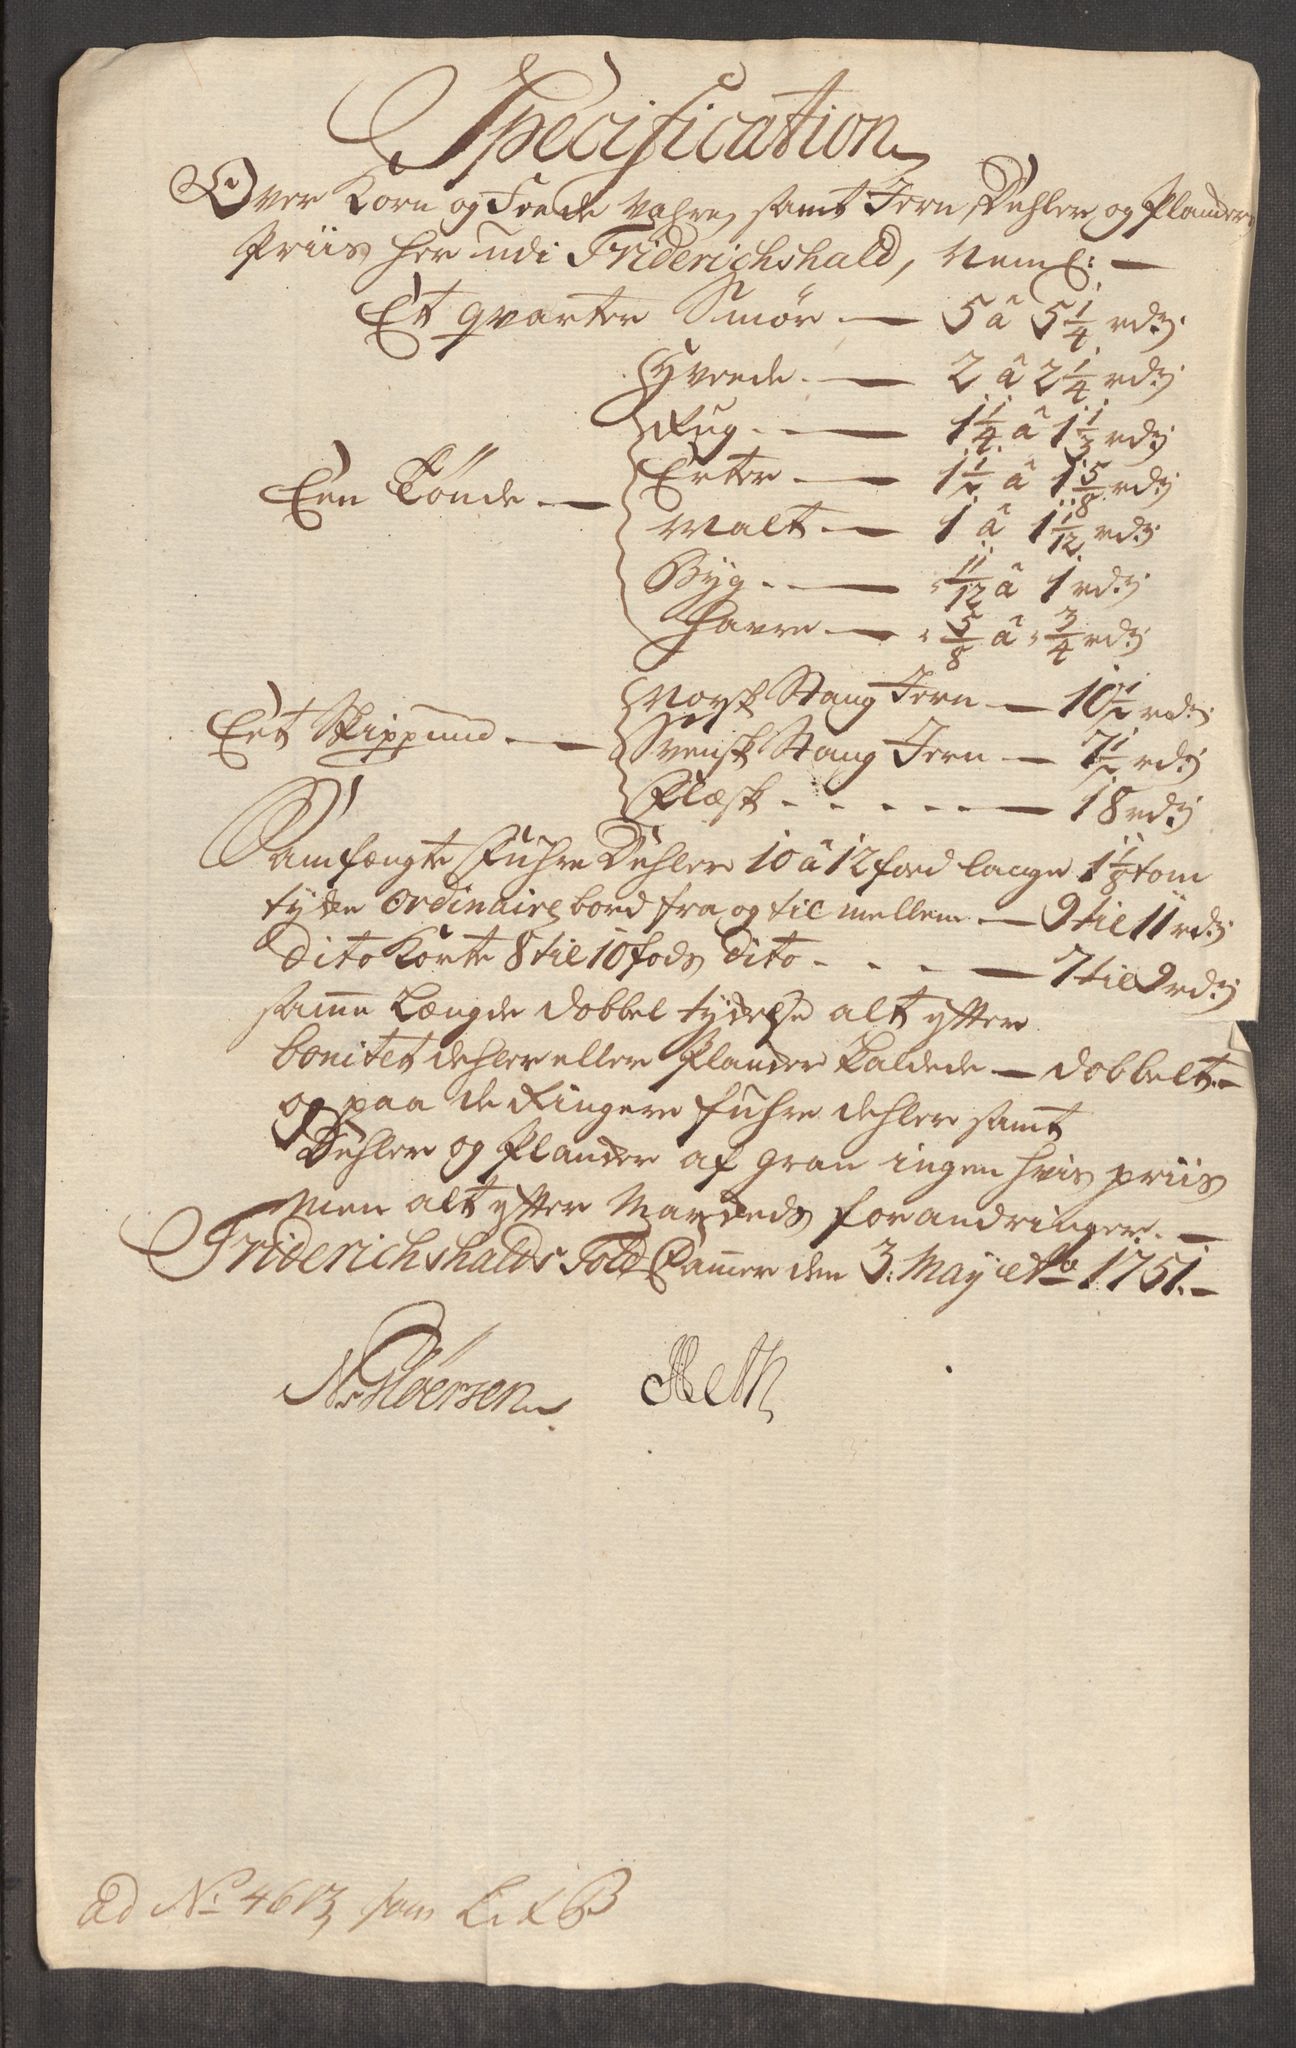 Specification
Over Korn og Feede Vahre, samt Jern, Dehler og Plancker
Priis her udi Friderichshald, Neml:
Et qvarter Smör — 5 â 5 1/4 rdr:
Hveede — 2 â 2 1/4 rdr:
Rug — 1 1/4 â 1 1/3 rdr:
Een Tönde — Erter — 1 1/2 â 1 5/8 rdr:
Malt — 1 â 1 1/12 rdr:
Byg — 11/12 â 1 rdr:
Havre — 5/8 â 3/4 rdr:
Norsk Stang Jern — 10 1/2 rdr:
Eet Skippund — Svensk Stang Jern — 7 1/2 rdr:
Flæsk — 18 rdr:
Samfængte Fuhre Dehler 10 â 12 foed lange 1 1/8 tom
tycke Ordinaire bord fra og til mellem — 9 til 11 rdr:
dito Korte 8 til 10 fods dito — 7 til 9 rdr:
samme Længde dobbel tyckelse alt efter
bonitet dehler eller Plancker kaldede — dobbelt. —
og paa de Ringere fuhre dehler samt
Dehler og Plancker af gran ingen vis priis
Men alt efter Marckeds forandringer. —
Friderichshalds Told Cammer den 3: Maij Ao 1751. —
ad No 4613 som Lit B